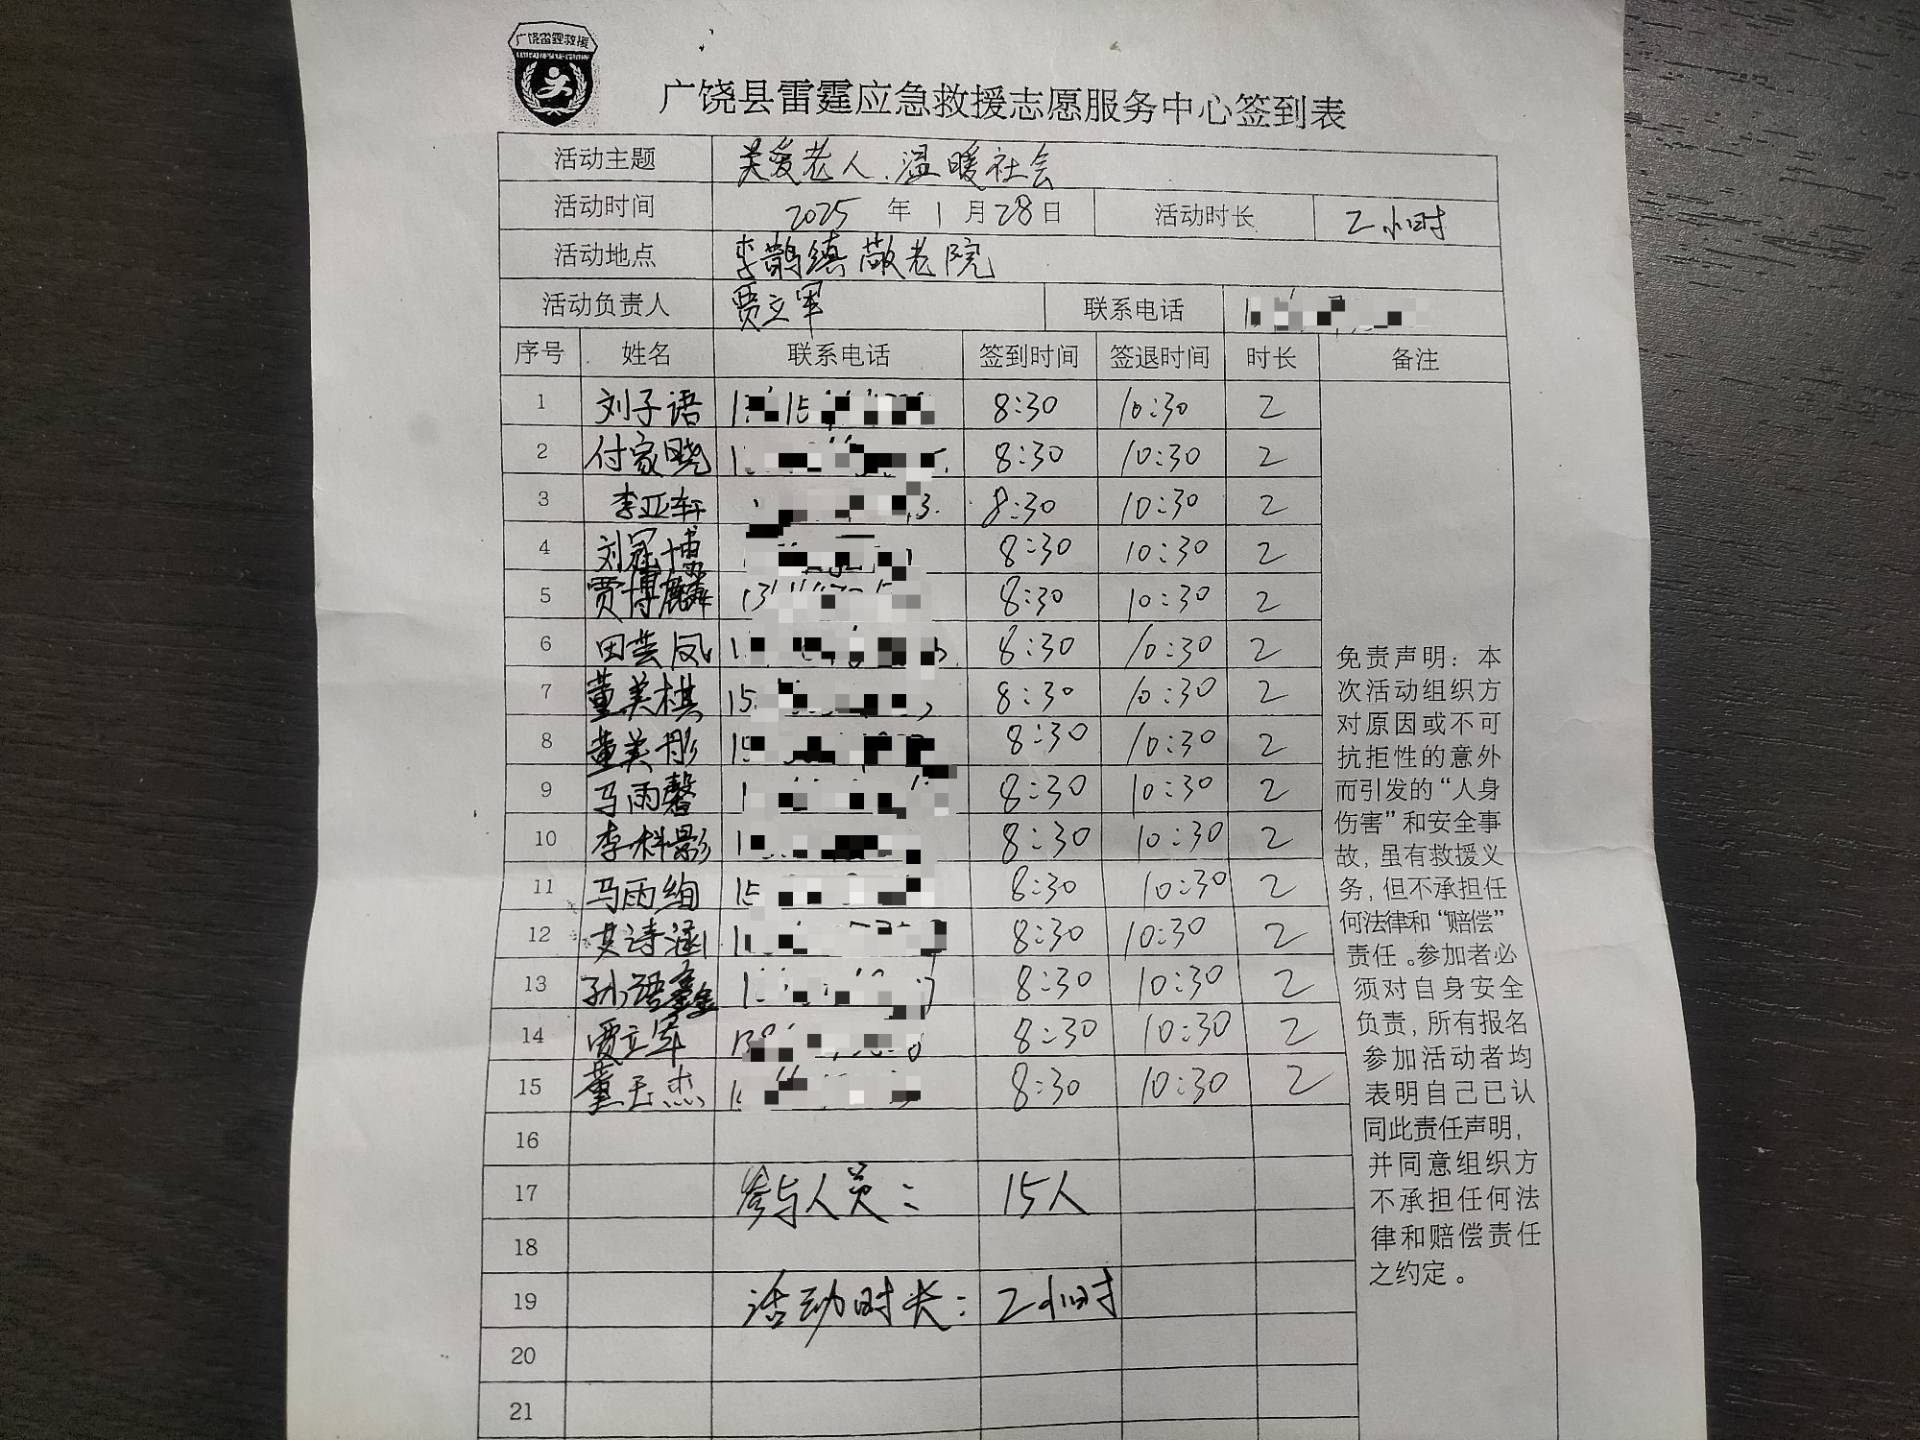 广饶雷霆救援
广饶县雷霆应急救援志愿服务中心签到表
活动主题 关爱老人.温暖社会
活动时间 2025年1月28日 活动时长 2小时
活动地点 李鹊镇敬老院
活动负责人 贾立军 联系电话
序号 姓名 联系电话 签到时间 签退时间 时长 备注
1 刘子语 8:30 10:30 2
2 付家晓 8:30 10:30 2
3 李亚轩 8:30 10:30 2
4 刘冠博 8:30 10:30 2
5 贾博麟 8:30 10:30 2
6 田芸凤 8:30 10:30 2
7 董美棋 15 8:30 10:30 2
8 董美彤 15 8:30 10:30 2
9 马雨馨 8:30 10:30 2
10 李科影 8:30 10:30 2
11 马雨绚 15 8:30 10:30 2
12 诗涵 8:30 10:30 2
13 孙语鑫 8:30 10:30 2
14 贾立军 8:30 10:30 2
15 董玉杰 8:30 10:30 2
16
17 参与人员: 15人
18
19 活动时长: 2小时
20
21
免责声明：本
次活动组织方
对原因或不可
抗拒性的意外
而引发的“人身
伤害”和安全事
故，虽有救援义
务，但不承担任
何法律和“赔偿”
责任。参加者必
须对自身安全
负责，所有报名
参加活动者均
表明自己已认
同此责任声明，
并同意组织方
不承担任何法
律和赔偿责任
之约定。